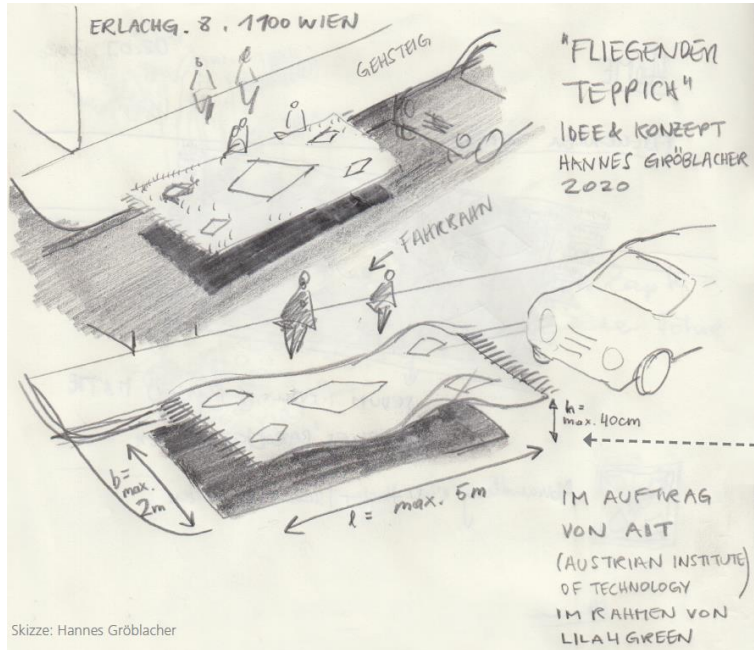 ERLACHG. 8. 1100 WIEN
GEHSTEIG
"FLIEGENDER
TEPPICH"
IDEE & KONZEPT
HANNES GRÖBLACHER
2020
FAHRBAHN
h=
max. 40cm
b=
max.
2m
l= max. 5m
IM AUFTRAG
VON AIT
(AUSTRIAN INSTITUTE
OF TECHNOLOGY)
IM RAHMEN VON
LILA4GREEN
Skizze: Hannes Gröblacher